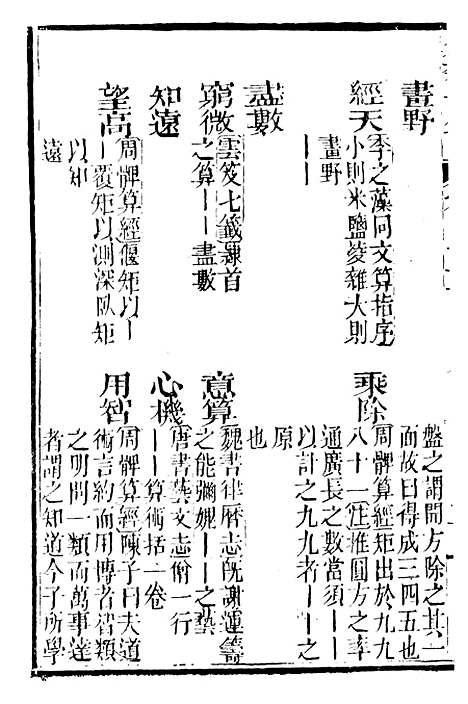 畫野
經天
李之藻同文算指序
小則米鹽凌雜大則
畫野
——
盡數
窮微
雲笈七籤隸首
之算——盡數
知遠
望高
周髀算經偃矩以—
—覆矩以測深臥矩
以知
遠
盤之謂開方除之其一
而故曰得成三四五也
乘除
周髀算經矩出於九九
八十一注推圓方之率
通廣長之數當須——
以計之九九者——之
原
也
意算
魏書律曆志既謝運籌
之能彌媿——之藝
心機
唐書藝文志俯一行
——算術括一卷
用智
周髀算經陳子曰夫道
術言約而用博者智類
之明問一類而萬事達
者謂之知道今子所學